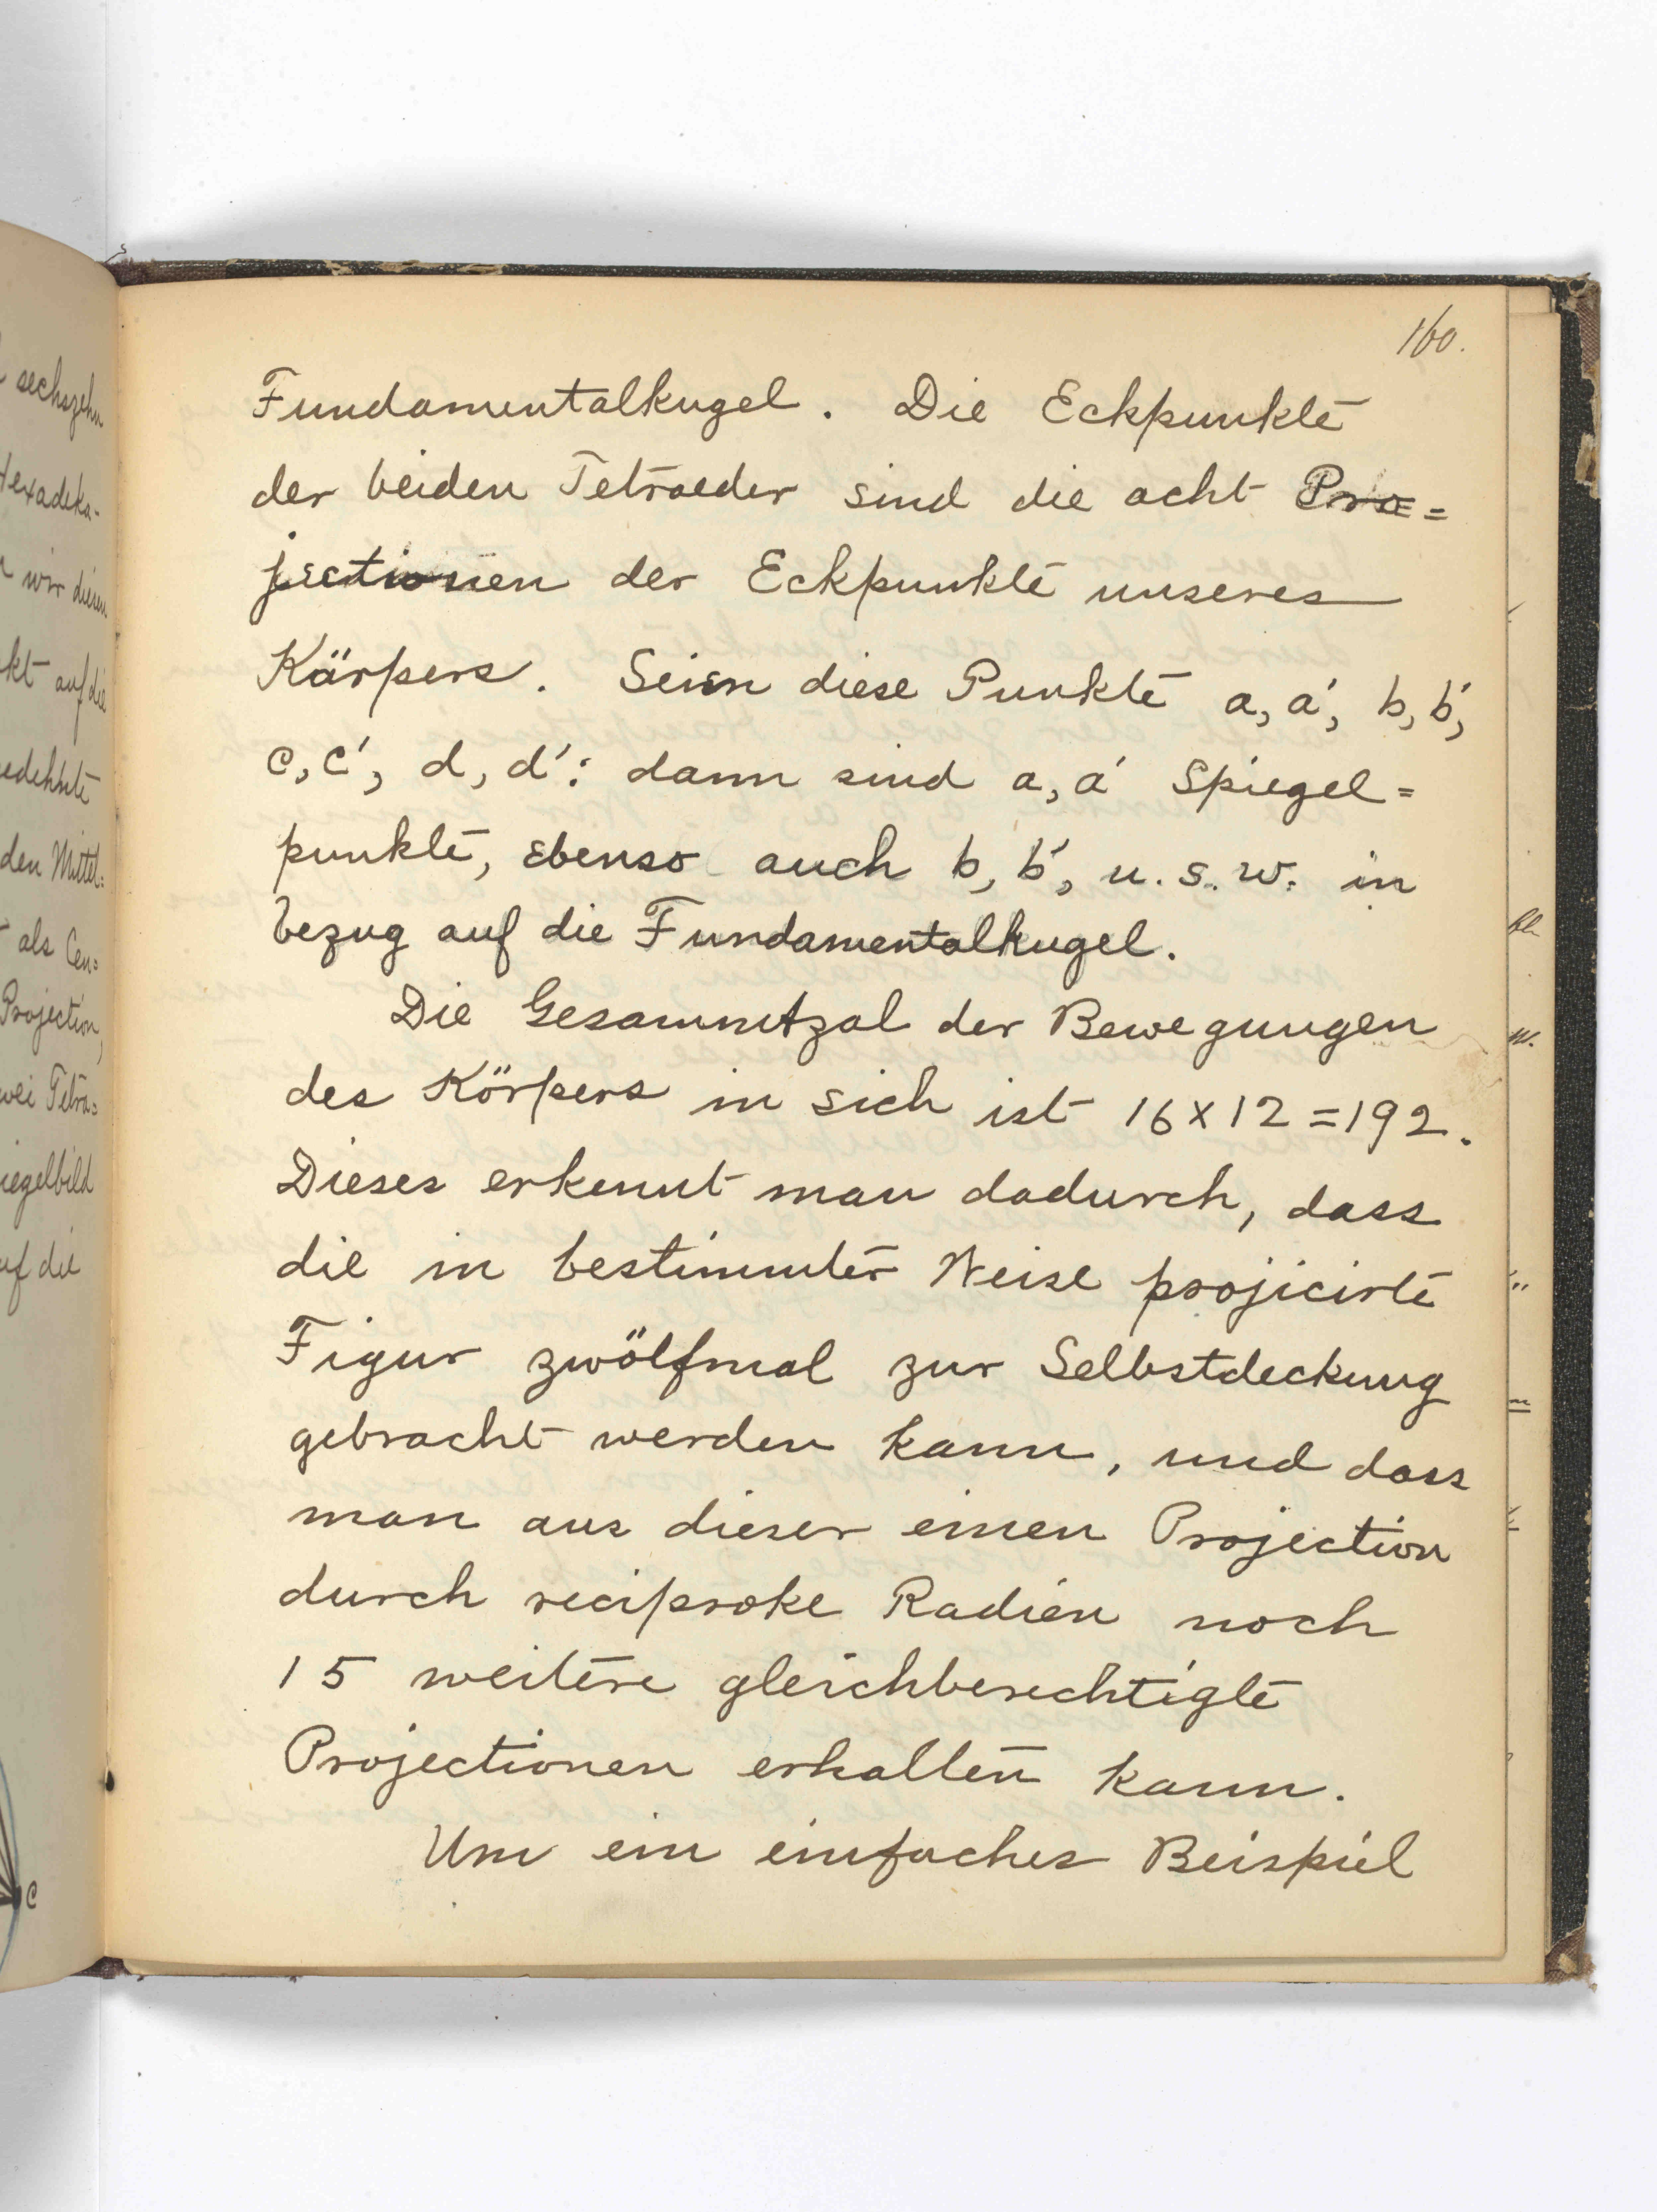 160.
Fundamentalkugel. Die Eckpunkte
der beiden Tetraeder sind die acht Pro=
jectionen der Eckpunkte unseres
Körpers. Seien diese Punkte a, a', b, b',
c, c', d, d': dann sind a, a' Spiegel=
punkte, ebenso auch b, b', u. s. w. in
bezug auf die Fundamentalkugel.
Die Gesammtzal der Bewegungen
des Körpers in sich ist 16 x 12 = 192.
Dieses erkennt man dadurch, dass
die in bestimmter Weise projicirte
Figur zwölfmal zur Selbstdeckung
gebracht werden kann, und dass
man aus dieser einen Projection
durch reciproke Radien noch
15 weitere gleichberechtigte
Projectionen erhalten kann.
Um ein einfaches Beispiel
sechszehn
Hexadeka-
wir diesen
kt auf die
edehnte
den Mittel=
als Cen=
Projection,
wei Tetra=
iegelbild
uf die
c